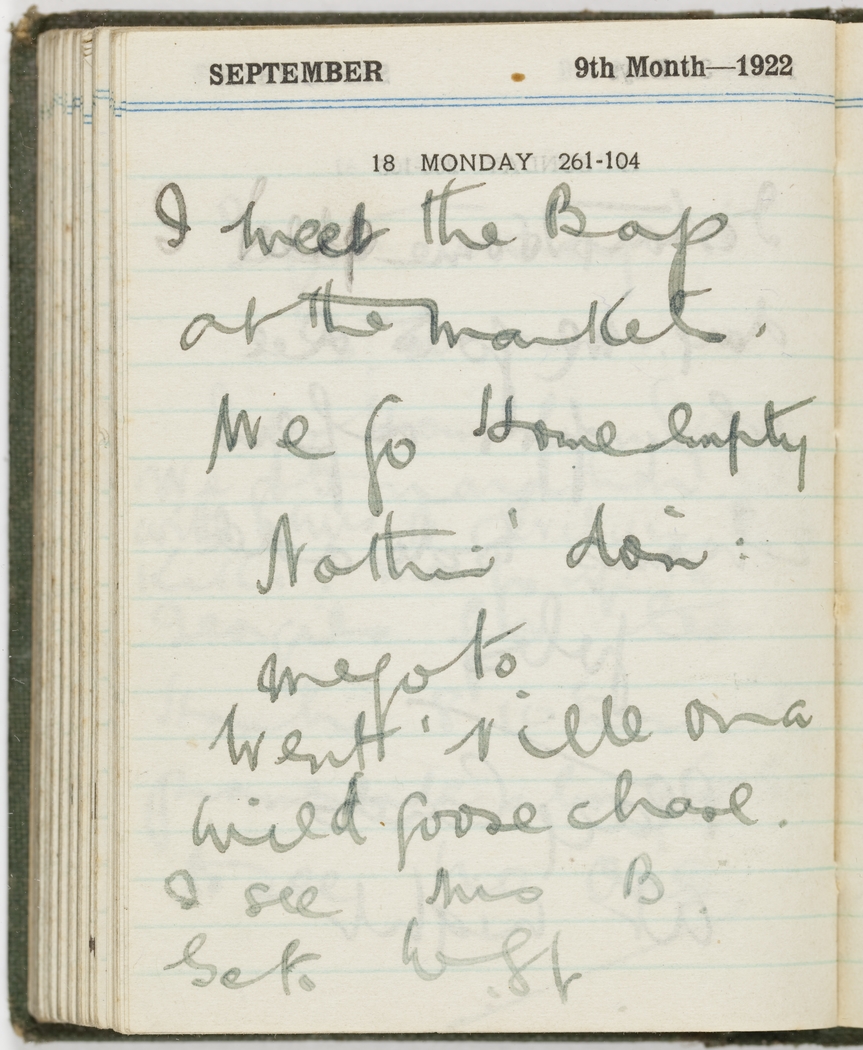 SEPTEMBER 9th Month—1922
18 MONDAY 261-104
I meet the Bap
at the market.
We go Home empty
Nothin' doin':
We go to
Went'ville on a
wild goose chase.
I see Mrs B.
Get